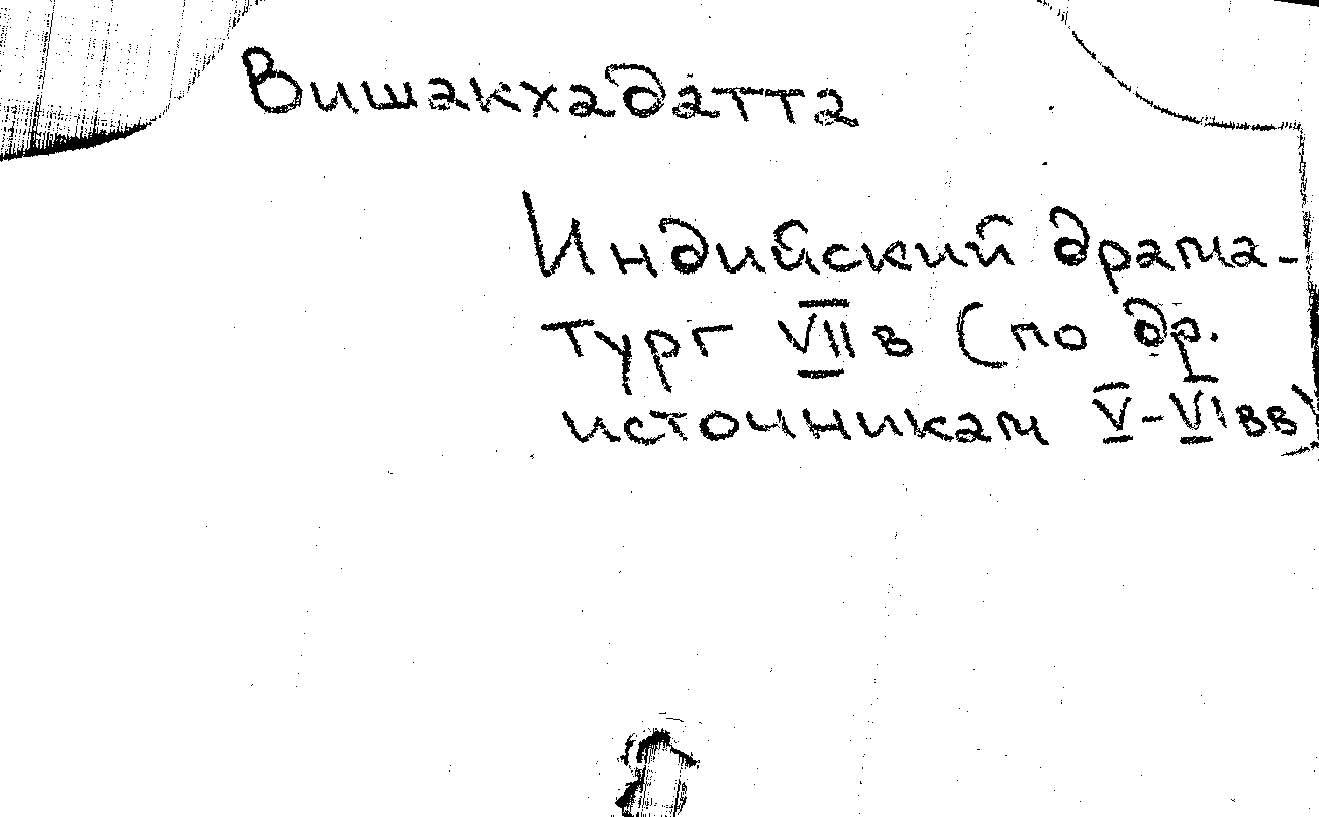 Вишакхадатта
Индийский драма-
тург VII в (по др.
источникам V-VI вв)